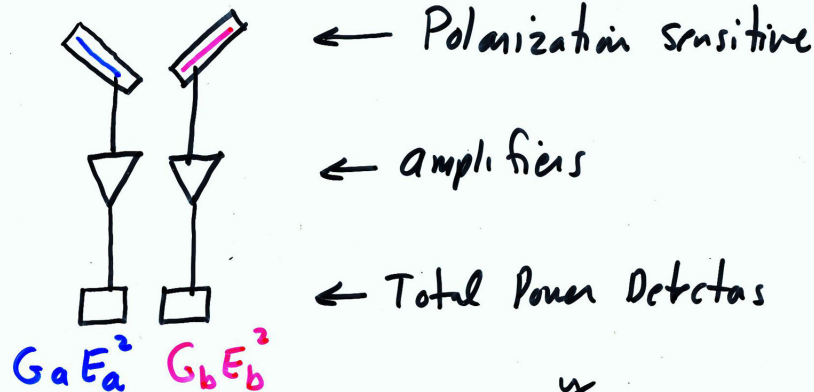 Polarization sensitive
amplifiers
Total Power Detectors
GaEa² GbEb²